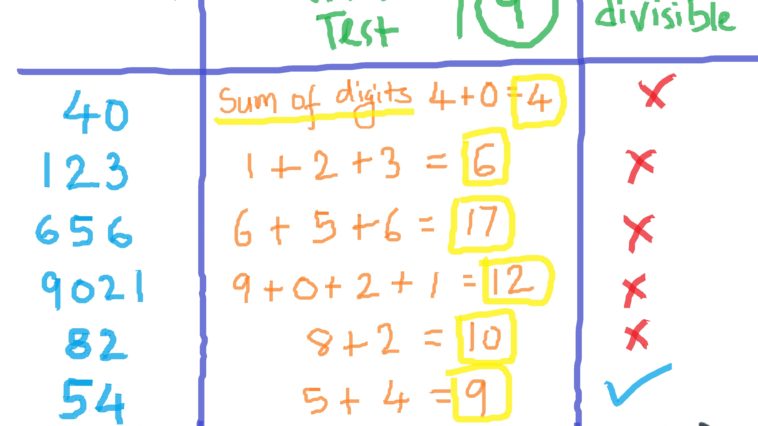 Test 9 divisible
40 Sum of digits 4+0=4 ✗
123 1+2+3=6 ✗
656 6+5+6=17 ✗
9021 9+0+2+1=12 ✗
82 8+2=10 ✗
54 5+4=9 ✓